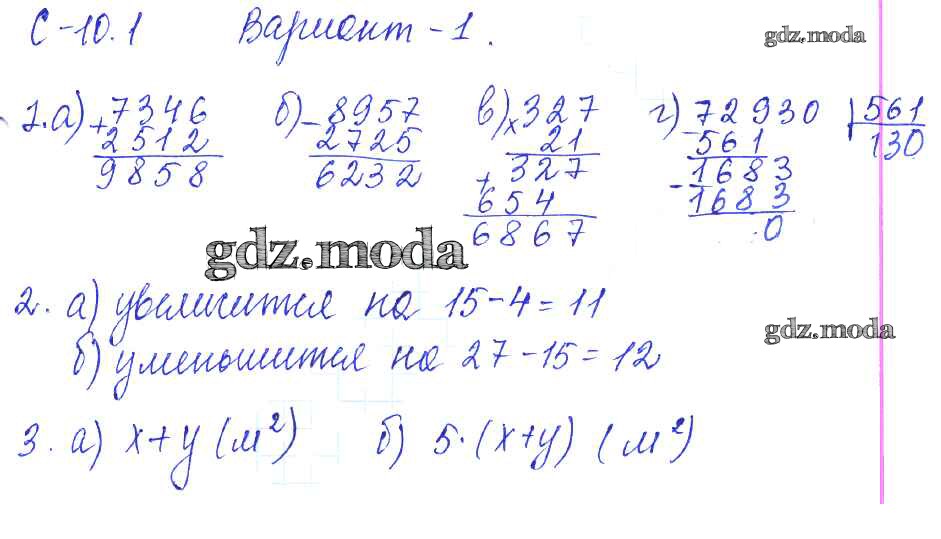 С-10.1 Вариант-1.
gdz.moda
1. а) + 7346 б) - 8957 в) x 327 г) 72930 | 561
2512 2725 21 - 561 130
9858 6232 + 327 1683
654 - 1683
6867 0
gdz.moda
2. а) увеличится на 15-4=11
gdz.moda
б) уменьшится на 27-15=12
3. а) x+y (м²) б) 5·(x+y) (м²)